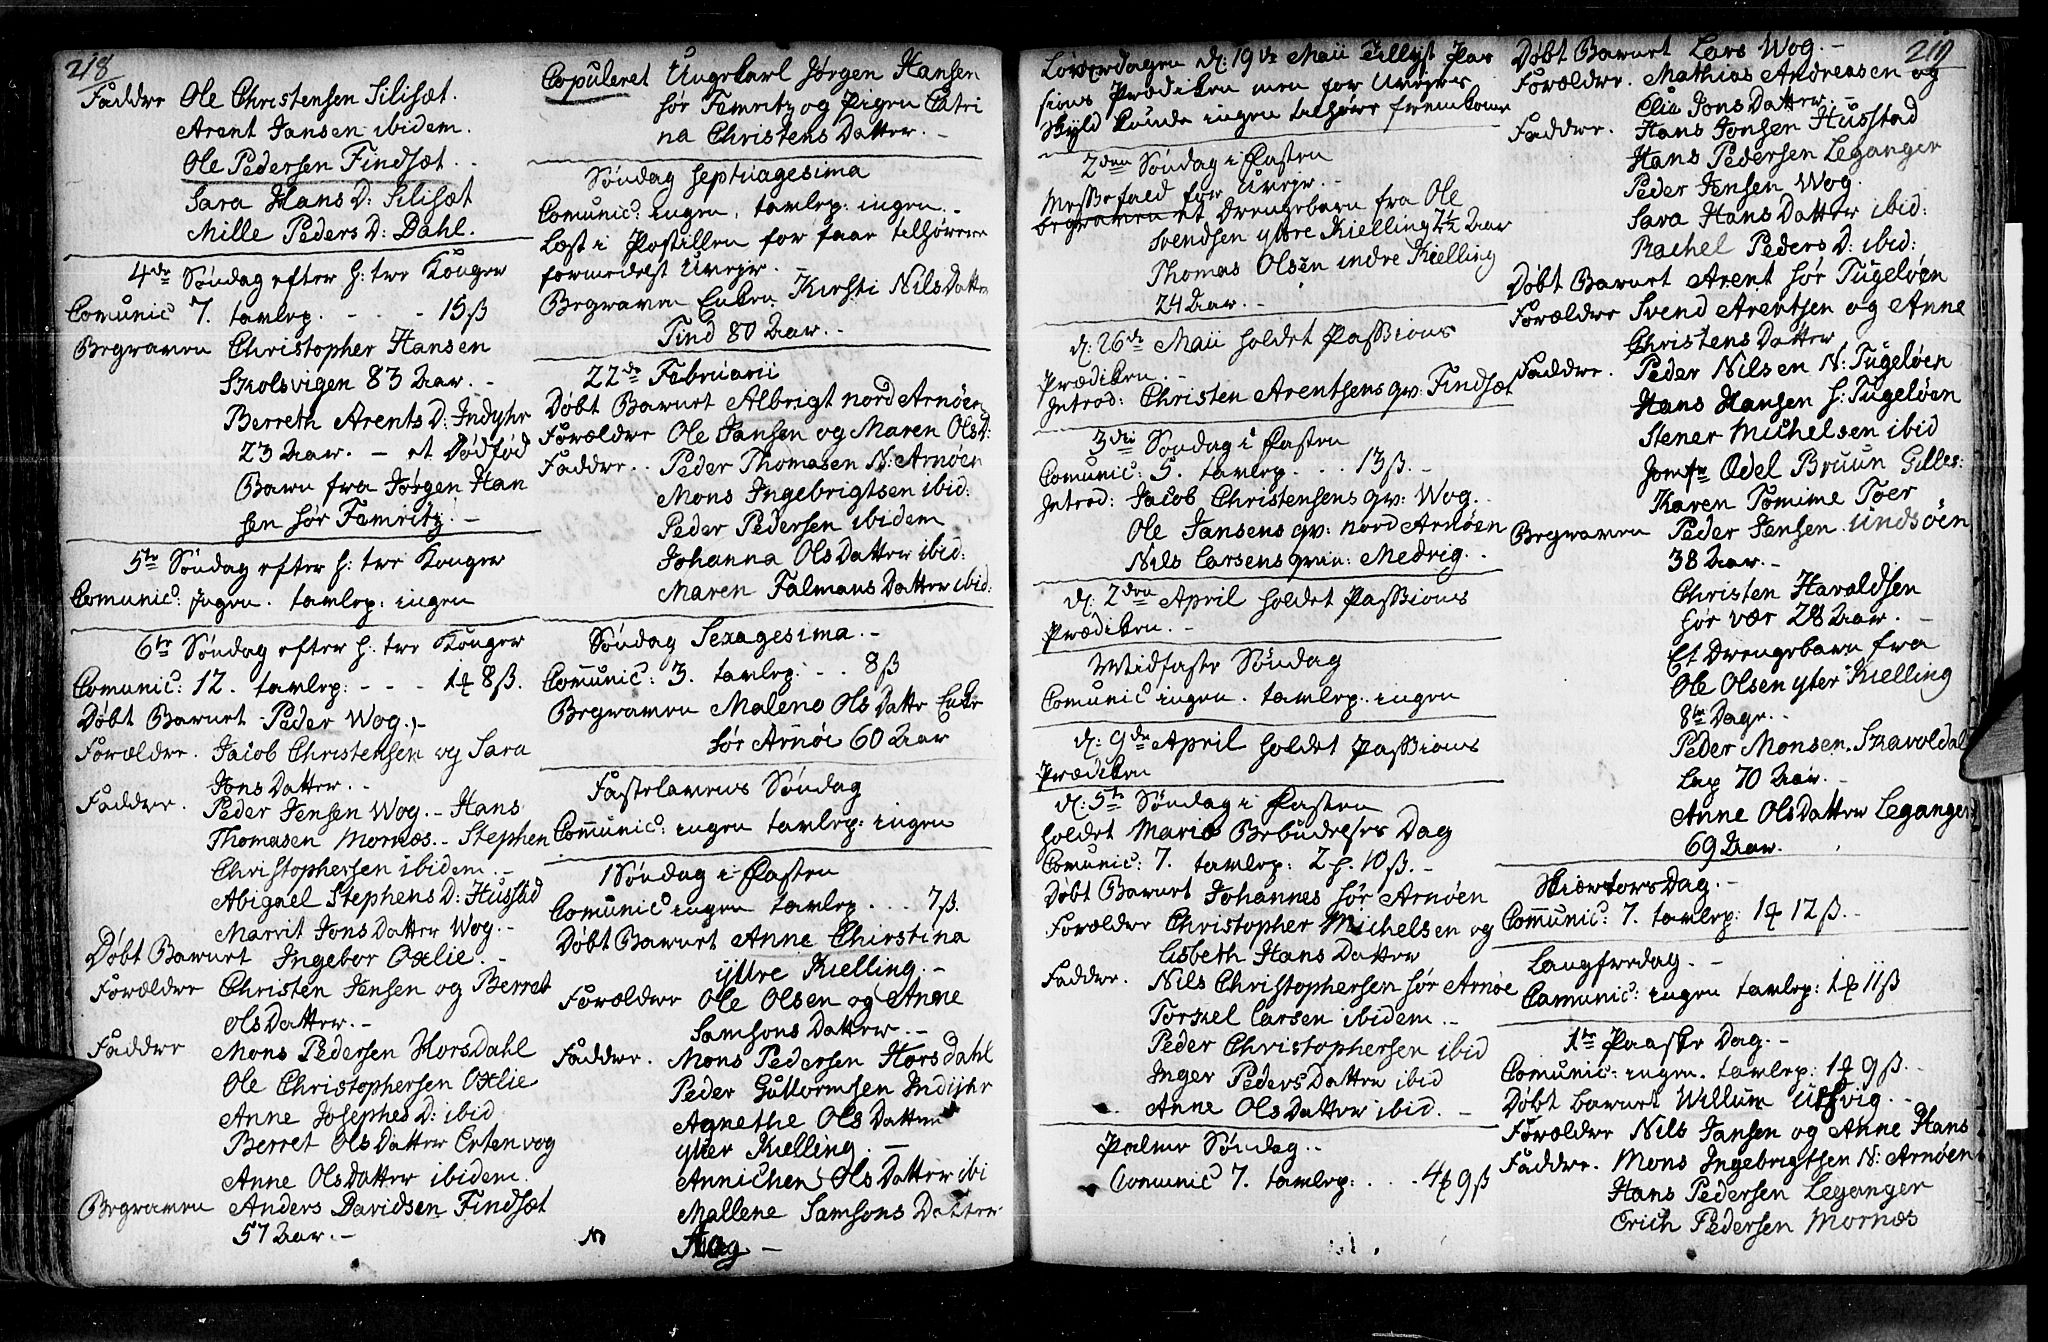 218
Faddre Ole Christensen Silisæt.
Arent Jansen ibidem.
Ole Pedersen Findsæt.
Sara Hans D: Silisæt
Mille Peders D: Dahl.
4de Søndag efter h: tre Konger
Comunic 7. tavlep. - - - 15 ß
Begraven Christopher Hansen
Skolsvigen 83 Aar. -
Berreth Arents D: Indyhr
23 Aar. - et Dødfød
Barn fra Jørgen Han
sen sør Femritz. -
5te Søndag efter h: tre Konger
Comunic: Ingen. tavlep: ingen
6te Søndag efter h: tre Konger
Comunic: 12. tavlep: - - - 1 8 ß.
Døbt Barnet Peder Wog. -
Forældre. Jacob Christensen og Sara
Jons Datter. -
Faddre. Peder Jensen Wog. - Hans
Thomasen Mornæs. - Stephen
Christophersen ibidem. -
Abigael Stephens D: Husstad
Marrit Jons Datter Wog. -
Døbt Barnet Ingebor Oxlie. -
Forældre Christen Jensen og Berret
Ols Datter. -
Faddre Mons Pedersen Horsdahl
Ole Christophersen Oxlie
Anne Josephes D: ibid
Berret Ols Datter Ertenvog
Anne Ols Datter ibidem.
Begraven Anders Davidsen Findsæt
57 Aar. -
Copuleret Ungekarl Jørgen Hansen
sør Femritz og Pigen Catri
na Christens Datter. -
Søndag Septuagesima
Comunic: ingen, tavlep: ingen. -
Læst i Postillen for faae tilhørere
formedelst Uvejr.
Begraven Enken Kirsti Nils Datter
Find 80 Aar. -
22de Februarii
Døbt Barnet Albrigt nord Arnøen
Forældre Ole Jansen og Maren Ols D:
Faddre. Peder Thomasen N: Arnøen
Mons Ingebrigtsen ibid:
Peder Pedersen ibidem
Johanna Ols Datter ibid:
Maren Falmans Datter ibid:
Søndag Sexagesima. -
Comunic: 3. tavlep: - - 8 ß
Begraven Maleno Ols Datter Enke
sør Arnøe 60 Aar
Fastelavens Søndag
Comunic: ingen tavlep: ingen
1 Søndag i Fasten
Comunic ingen tavlep. . . 7 ß.
Døbt Barnet Anne Chirstina
yttre Kielling. -
Forældre Ole Olsen og Anne
Samsons Datter. -
Faddre. Mons Pedersen Horsdahl
Peder Guttormsen Indijhr
Agnethe Ols Datter
ytter Kielling. -
Annichen Ols Datter ibi
Mallene Samsons Datter
Aag. -
Løverdagen d: 19de Maii tillyst Pas
sions Prædiken men for Uvejrs
skyld kunde ingen tilhøre fremkome
2den Søndag i Fasten
Messefald for Uvejr. -
begraven et Drengebarn fra Ole
Svendsen ytre Kielling 2½ Aar
Thomas Olsen indre Kielling
24 Aar. -
d: 26de Maii holdet Passions
Prædiken. -
Introd: Christen Arentsens qv: Findsæt
3die Søndag i Fasten
Comunic: 5. tavlep. . . 13 ß. -
Introd: Jacob Christensens qv: Wog.
Ole Jansens qv: nord Arnøen
Nils Larsens qvin: Medvig.
d: 2den April holdet Passions
Prædiken. -
Midfaste Søndag
Comunic ingen. tavlep. ingen
d: 9de April holdet Passions
Prædiken
d: 5te Søndag i Fasten
holdet Mariæ Bebudelses Dag
Comunic: 7. tavlep: 2 h. 10 ß. -
Døbt Barnet Johannes sør Arnøen
Forældre Christopher Michelsen og
Lisbeth Hans Datter
Faddre. Nils Christophersen sør Arnøe
Torkel Larsen ibidem. -
Peder Christophersen ibid
Inger Peders Datter ibid
Anne Ols Datter ibid. -
Palme Søndag. -
Comunic 7. tavlep: . . . 4 9 ß
219
Døbt Barnet Lars Wog. -
Forældre. Mathias Andreasen og
Elie Jons Datter. -
Faddre. Hans Jonsen Husstad
Hans Pedersen Leganger
Peder Jensen Wog.
Sara Hans Datter ibid:
Rachel Peders D: ibid:
Døbt Barnet Arent sør Fugeløen
Forældre Svend Arentsen og Anne
Christens Datter
Faddre. Peder Nilsen N: Fugeløen
Hans Hansen S: Fugeløen
Stener Michelsen ibid
Jomfr Odel Bruun Gilles:
Karen Tomime Foer
Begraven Peder Jensen Undsøen
38 Aar. -
Christen Haraldsen
sør vær 28 Aar. -
Et Drengebarn fra
Ole Olsen yter Kielling
8te Dage. -
Peder Monsen Skavoldal
Lap 70 Aar. -
Anne Ols Datter Leganger
69 Aar.
Skiertors Dag. -
Comunic: 7. tavlep: 1 12 ß. -
Langfredag. -
Comunic: ingen tavlep: 1 11 ß
1te Paaske Dag. -
Comunic: ingen. tavlep: 1 9 ß. -
Døbt barnet Willum Utvig. -
Forældre Nils Jansen og Anne Hans
Faddre. Mons Ingebrigtsen N: Arnøen
Hans Pedersen Leganger
Erich Pedersen Mornæs